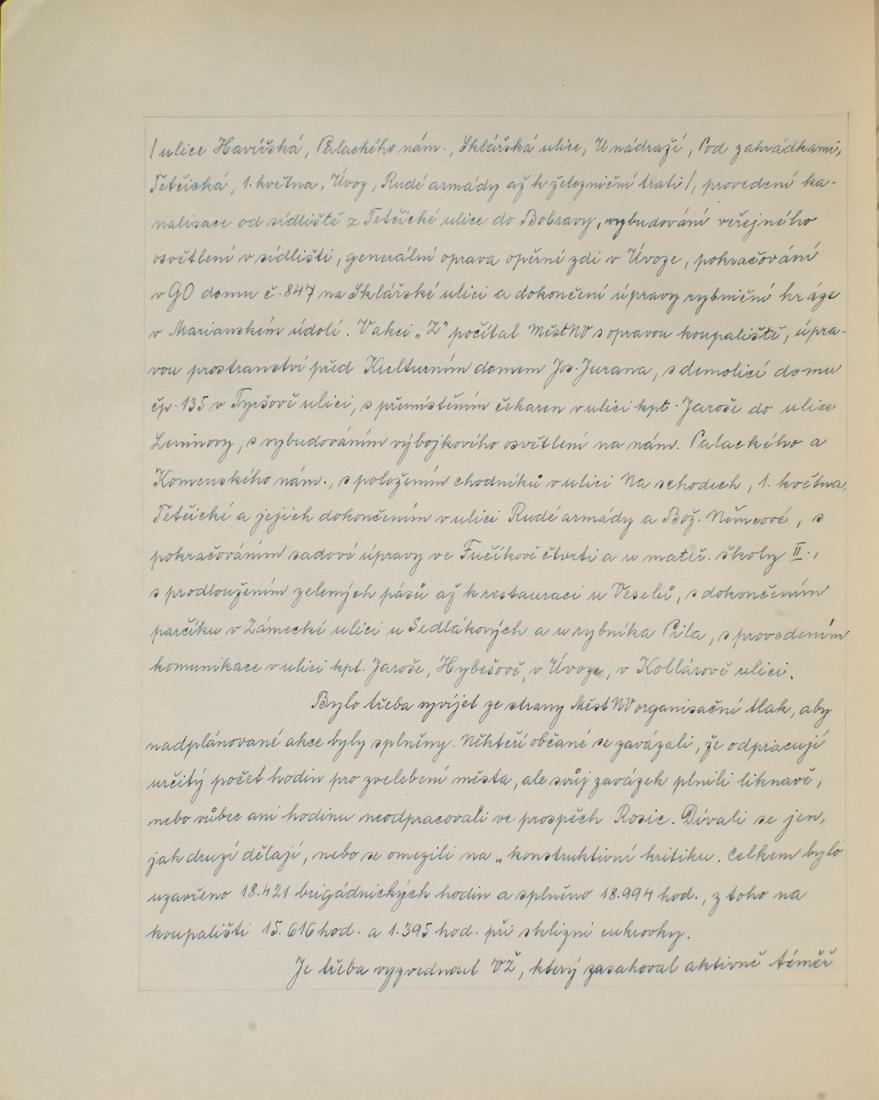 /ulice Havířská, Palackého nám., Sklářská ulice, U nádraží, Pod zahrádkami,
Tetčická, 1. května, Úvoz, Rudé armády až k železniční trati/, provedení ka-
nalisace od sídliště z Tetčické ulice do Bobravy, vybudování veřejného
osvětlení v sídlišti, generální oprava opěrné zdi v Úvoze, pokračování
v GO domu č. 847 na Sklářské ulici a dokončení úpravy rybniční hráze
v Marianském údolí. V akci „Z" počítal MěstNV s opravou koupaliště, úpra-
vou prostranství před Kulturním domem Jos. Jurana, s demolicí domu
čp. 135 v Tyršově ulici, s přemístěním čekaren v ulici kpt. Jaroše do ulice
Leninovy, s vybudováním výbojkového osvětlení na nám. Palackého a
Komenského nám., s položením chodníků v ulici Na schodech, 1. května,
Tetčické a jejich dokončením v ulici Rudé armády a Bož. Němcové, s
pokračováním sadové úpravy ve Fučíkově čtvrti a u mateř. školy II.,
s prodloužením zelených pásů až k restauraci u Veselů, s dokončením
parčíku v Zámecké ulici u Sedlákových a u rybníka Pila, s provedením
komunikace v ulici kpt. Jaroše, Hybešově, v Úvoze, v Kollárově ulici.
Bylo třeba vyvíjet ze strany MěstNV organisační tlak, aby
nadplánované akce byly splněny. Někteří občané se zavázali, že odpracují
určitý počet hodin pro zvelebení města, ale svůj závazek plnili liknavě,
nebo vůbec ani hodinu neodpracovali ve prospěch Rosic. Dívali se jen,
jak druzí dělají, nebo se omezili na „konstruktivní kritiku. Celkem bylo
uzavřeno 18.421 brigádnických hodin a splněno 18.994 hod., z toho na
koupališti 15.616 hod. a 1.395 hod. při sklizni cukrovky.
Je třeba vyzvednout VŽ, který zasahoval aktivně téměř